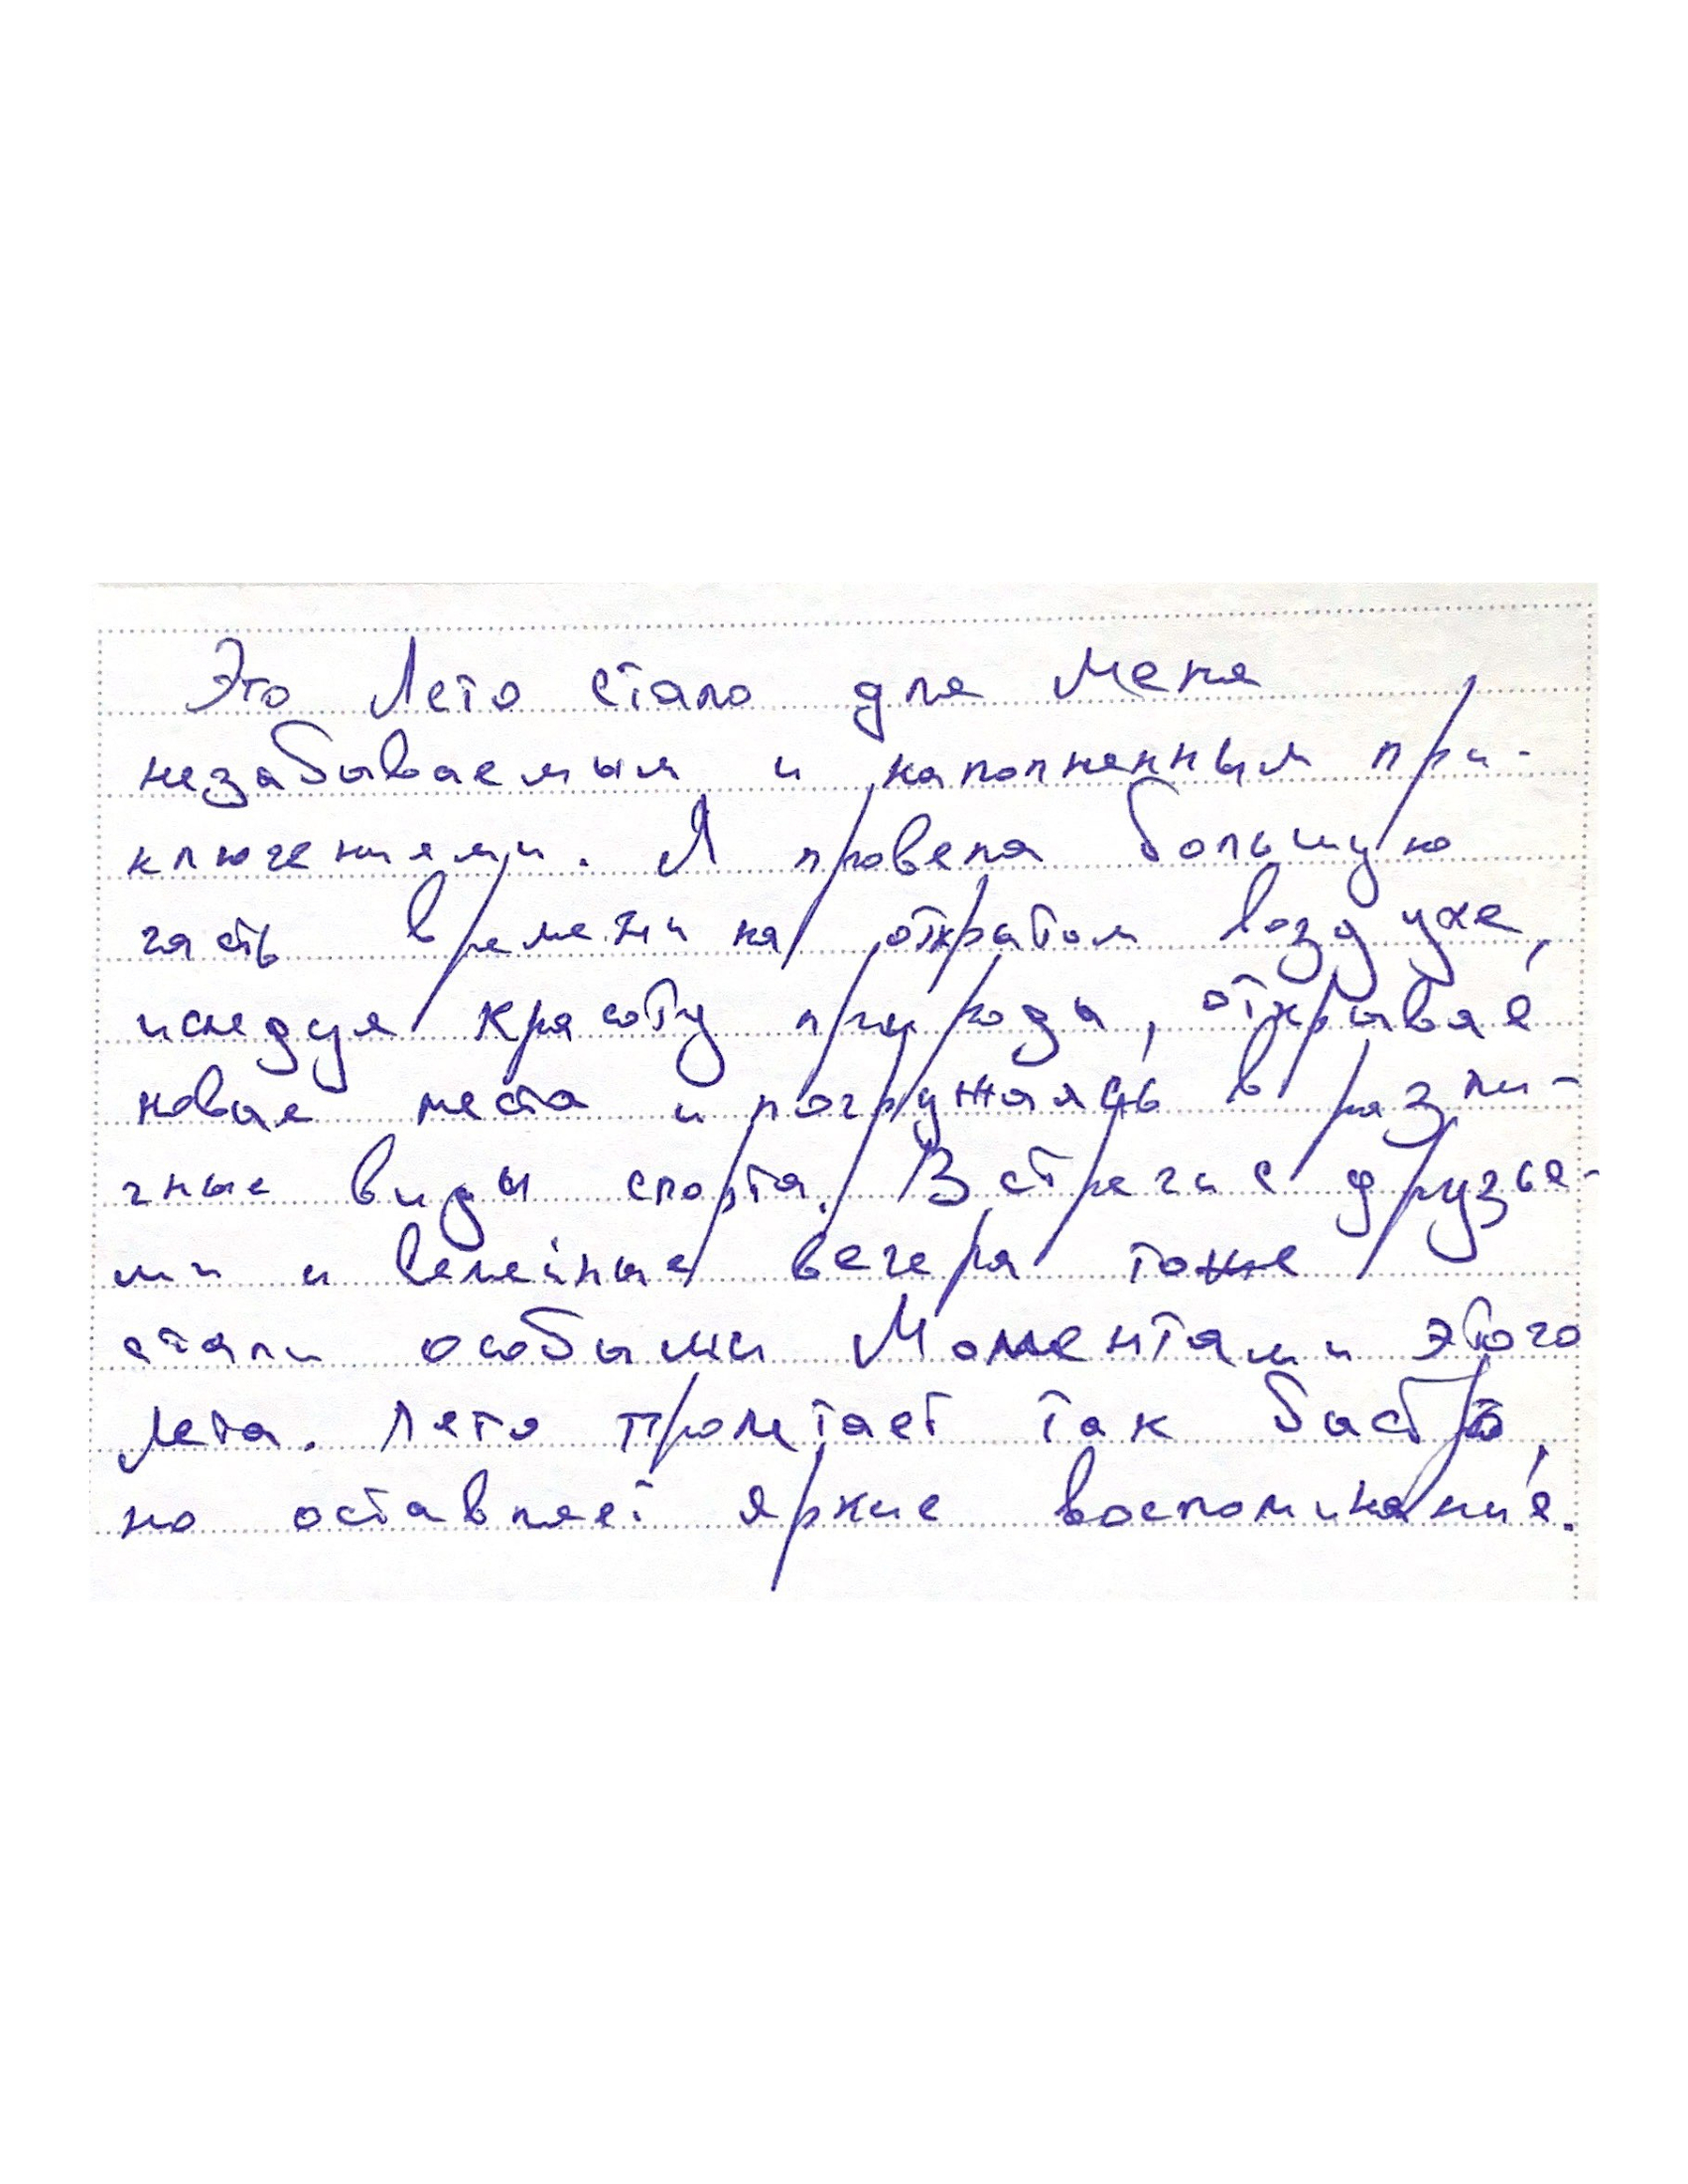 Это Лето стало для меня
незабываемым и наполненным при-
ключениями. Я провела большую
часть времени на открытом воздухе,
иследуя красоту природы, открывая
новые места и погружаясь в разли-
чные виды спорта. Встречи с друзья-
ми и семейные вечера тоже
стали особыми Моментами этого
лета. Лето пролетает так быстро,
но оставляет яркие воспоминания.